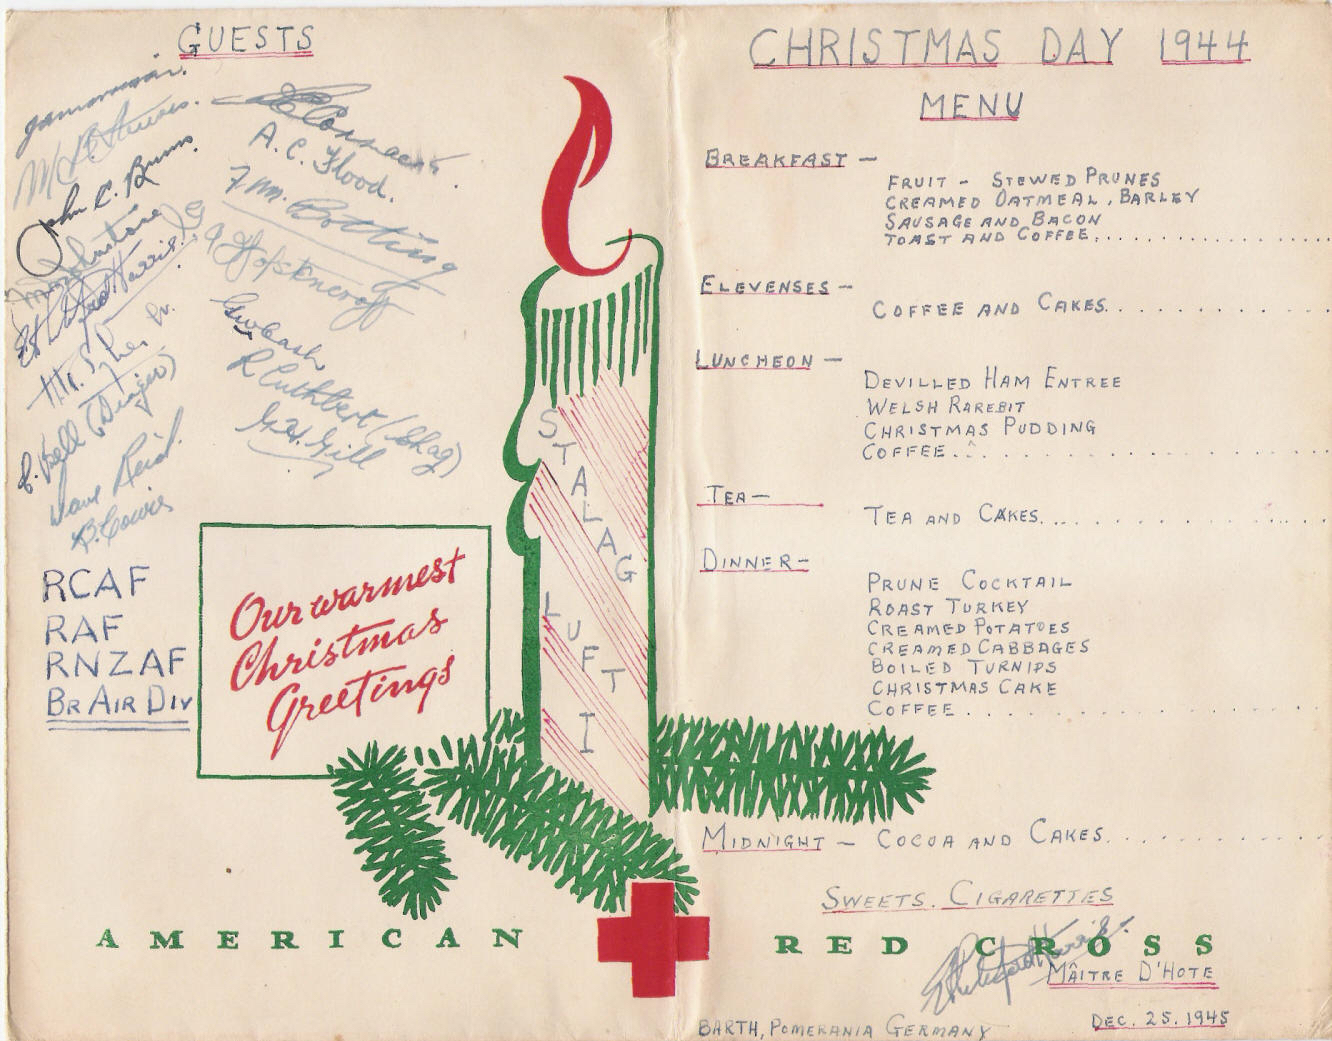 GUESTS
John C. Burns.
A. C. Flood.
F. Wm. Botting
R Cuthbert (Shag)
G.W. Gill
Dave Reid.
B. Cowie
RCAF
RAF
RNZAF
BR AIR DIV
Our warmest
Christmas
Greetings
STALAG
LUFT
I
CHRISTMAS DAY 1944
MENU
BREAKFAST –
FRUIT – STEWED PRUNES
CREAMED OATMEAL, BARLEY
SAUSAGE AND BACON
TOAST AND COFFEE..................
ELEVENSES –
COFFEE AND CAKES..................
LUNCHEON –
DEVILLED HAM ENTREE
WELSH RAREBIT
CHRISTMAS PUDDING
COFFEE..................
TEA –
TEA AND CAKES..................
DINNER –
PRUNE COCKTAIL
ROAST TURKEY
CREAMED POTATOES
CREAMED CABBAGES
BOILED TURNIPS
CHRISTMAS CAKE
COFFEE..................
MIDNIGHT – COCOA AND CAKES..................
SWEETS. CIGARETTES
AMERICAN RED CROSS
MÂITRE D'HOTE
BARTH, POMERANIA GERMANY
DEC. 25. 1945